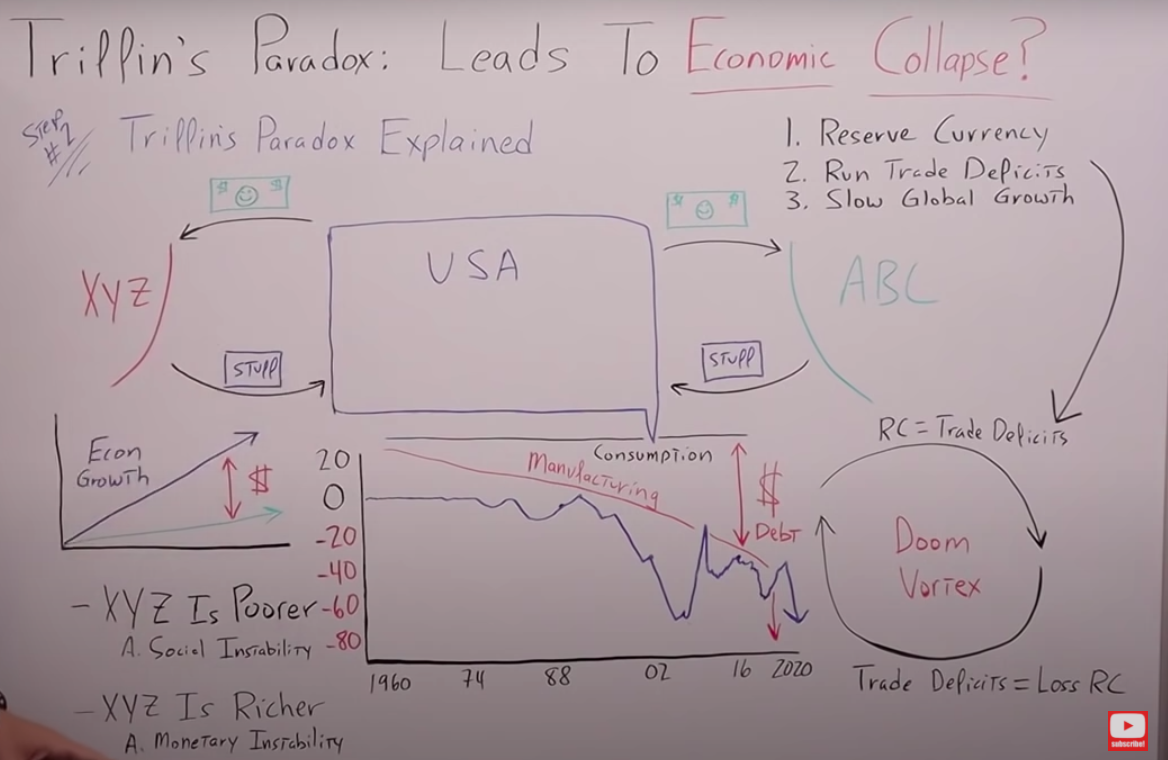 Triffin's Paradox: Leads To Economic Collapse?
Step #2
Triffin's Paradox Explained
1. Reserve Currency
2. Run Trade Deficits
3. Slow Global Growth
$ $
$ $
USA
XYZ
ABC
STUFF
STUFF
RC = Trade Deficits
Econ Growth
$
Consumption
Manufacturing
$
Debt
20
0
-20
-40
-60
-80
1960 74 88 02 16 2020
Doom
Vortex
Trade Deficits = Loss RC
- XYZ Is Poorer
A. Social Instability
- XYZ Is Richer
A. Monetary Instability
subscribe!